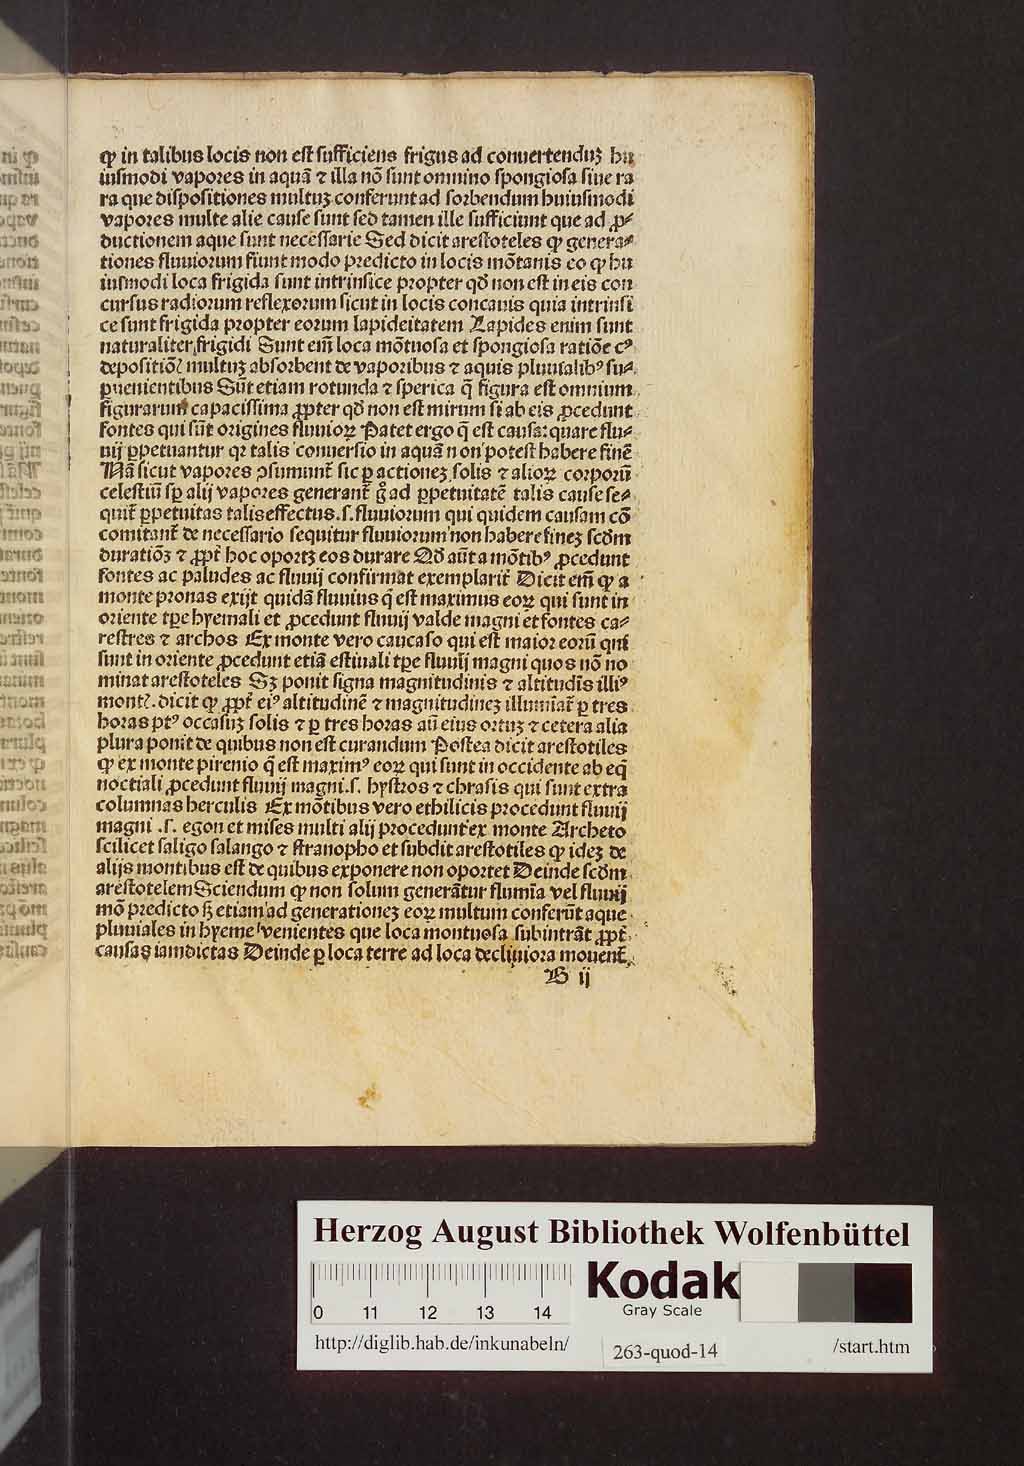 ꝙ in talibus locis non est sufficiens frigus ad conuertenduꝫ hu
iusmodi vapores in aquā ⁊ illa nō sunt omnino spongiosa siue ra
ra que dispositiones multuꝫ conferunt ad sorbendum huiusmodi
vapores multe alie cause sunt sed tamen ille sufficiunt que ad ꝓ⸗
ductionem aque sunt necessarie Sed dicit arestoteles ꝙ genera⸗
tiones fluuiorum fiunt modo predicto in locis mōtanis eo ꝙ hu
iusmodi loca frigida sunt intrinsice propter qđ non est in eis con
cursus radiorum reflexorum sicut in locis concauis quia intrinsi
ce sunt frigida propter eorum lapideitatem Lapides enim sunt
naturaliter frigidi Sunt em̄ loca mōtuosa et spongiosa ratiōe cꝰ
depositiōꝭ multuꝫ absorbent de vaporibus ⁊ aquis pluuialibꝰ su⸗
ꝑuenientibus Sūt etiam rotunda ⁊ sperica q̄ figura est omnium
figurarum capacissima ꝓpter qđ non est mirum si ab eis ꝓcedunt
fontes qui sūt origines fluuioꝝ Patet ergo q̄ est causa: quare flu⸗
uij ꝑpetuantur qꝛ talis conuersio in aquā non potest habere finē
Nā sicut vapores ꝯsumunt̄ sic ꝑ actionez solis ⁊ alioꝝ corporū
celestiū sp̄ alij vapores generant̄ gͦ ad ꝑpetuitatē talis cause se⸗
quit̄ ꝑpetuitas talis effectus .s. fluuiorum qui quidem causam cō
comitant̄ de necessario sequitur fluuiorum non habere fineꝫ scđm
duratiōꝫ ⁊ ꝓpt̄ hoc oportꝫ eos durare Qđ aūt a mōtibꝰ ꝓcedunt
fontes ac paludes ac fluuij confirmat exemplarit̄ Dicit em̄ ꝙ a
monte pronas exijt quidā fluuius q̄ est maximus eoꝝ qui sunt in
oriente tꝑe hyemali et ꝓcedunt fluuij valde magni et fontes ca⸗
restres ⁊ archos Ex monte vero caucaso qui est maior eorū qui
sunt in oriente ꝓcedunt etiā estiuali tꝑe fluuij magni quos nō no
minat arestoteles Sꝫ ponit signa magnitudinis ⁊ altitudīs illiꝰ
montꝭ. dicit ꝙ ꝓpt̄ eiꝰ altitudinē ⁊ magnitudineꝫ illumīat̄ ꝑ tres
horas ptꝰ occasuꝫ solis ⁊ ꝑ tres horas aū eius ortuꝫ ⁊ cetera alia
plura ponit de quibus non est curandum Postea dicit arestotiles
ꝙ ex monte pirenio q̄ est maximꝰ eoꝝ qui sunt in occidente ab eq̄
noctiali ꝓcedunt fluuij magni .s. hystros ⁊ chrasis qui sunt extra
columnas herculis Ex mōtibus vero ethilicis procedunt fluuij
magni .s. egon et mises multi alij procedunt ex monte Archeto
scilicet saligo salango ⁊ stranopho et subdit arestotiles ꝙ ideꝫ de
alijs montibus est de quibus exponere non oportet Deinde scđm
arestotelem Sciendum ꝙ non solum generātur flumīa vel fluuij
mō predicto sꝫ etiam ad generationeꝫ eoꝝ multum conferūt aque
pluuiales in hyeme venientes que loca montuosa subintrāt ꝓpt̄
causas iamdictas Deinde ꝑ loca terre ad loca decliuiora mouent̄
B ij
Herzog August Bibliothek Wolfenbüttel
0 11 12 13 14
Kodak
Gray Scale
http://diglib.hab.de/inkunabeln/
263-quod-14
/start.htm